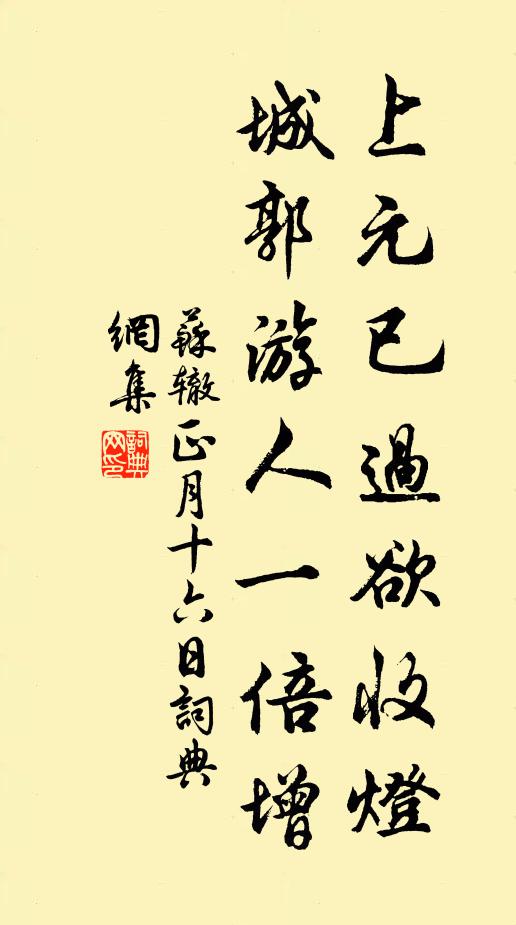 上元已過欲收燈
城郭游人一倍增
蘇辙正月十六日詞典
網集
詞典
网印